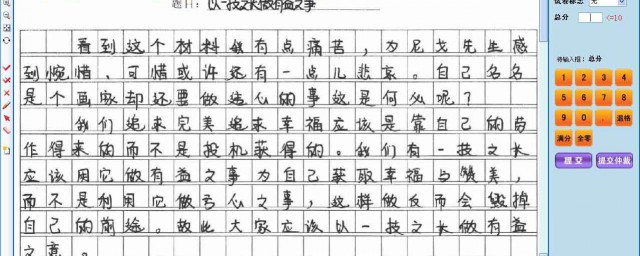 题目：以一技之长做有益之事
看到这个材料我有点痛苦，为尼戈先生感
到惋惜、可惜或许还有一点儿悲哀。自己名名
是个画家却还要做违心的事这是何么呢？
我们追来完美追来幸福应该是靠自己的劳
作得来的而不是投机获得的。我们有一技之长
应该用它做有益之事为自己获取幸福与赞美，
而不是利用它做亏心之事，这样做反而会毁掉
自己的前途。故此大家应该以一技之长做有益
之意。
试卷标志 无
总分 <=10
请输入框：总分
1 2 3 4
5 6 7 8
9 0 . 退格
满分 全零
提交 提交仲裁